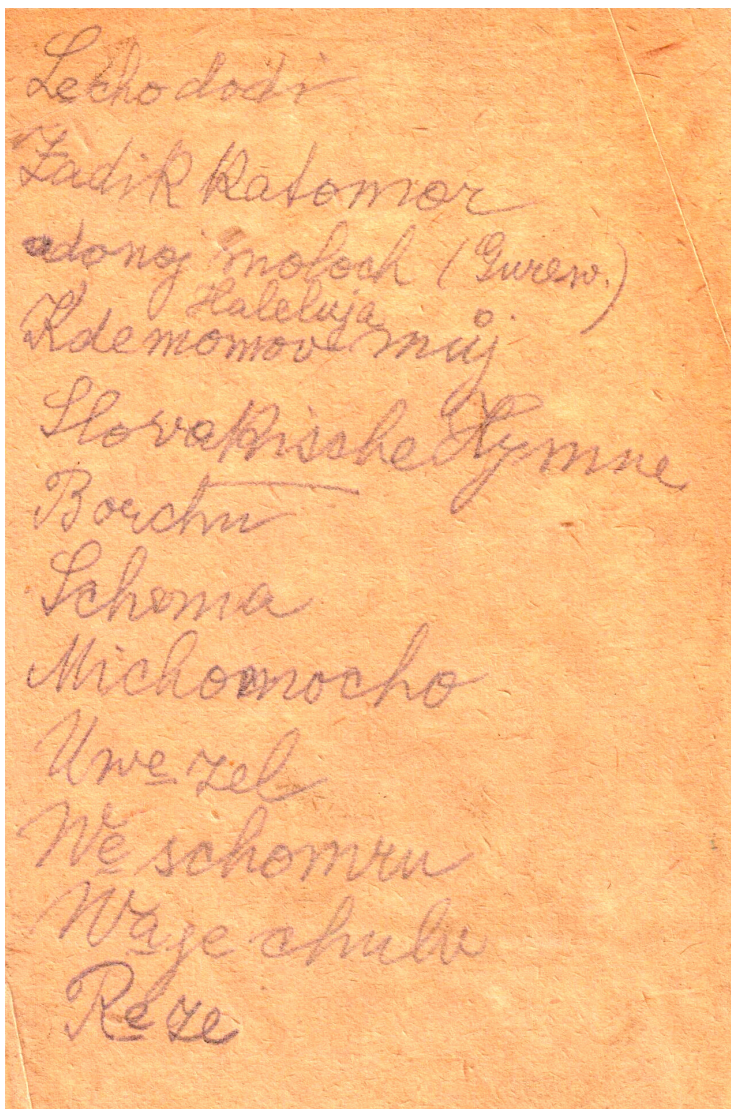 Lecho dodi
Zadik Katomor
adonoj moloch (Gurew.)
Haleluja
Kde momov můj
Slovakische Hymne
Borchu
Schema
Michomocho
Uwe zel
We schomru
Waje chulu
Reze